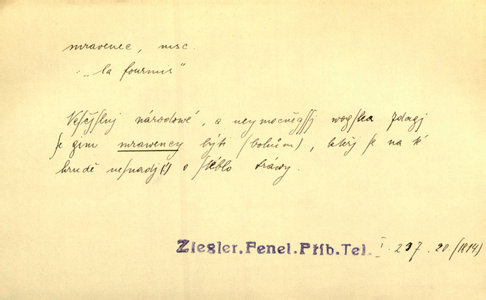 mravenec, msc.
„la fourmis“
národowé, a neymocněgſſj wogſka zdagj
ſe gim mrawency býti (bohům), kteřj ſe na té
hrudě neſnadj o ſtéblo tráwy.
Ziegler.Fenel.Příb.Tel. I. 237. 20. (1814)